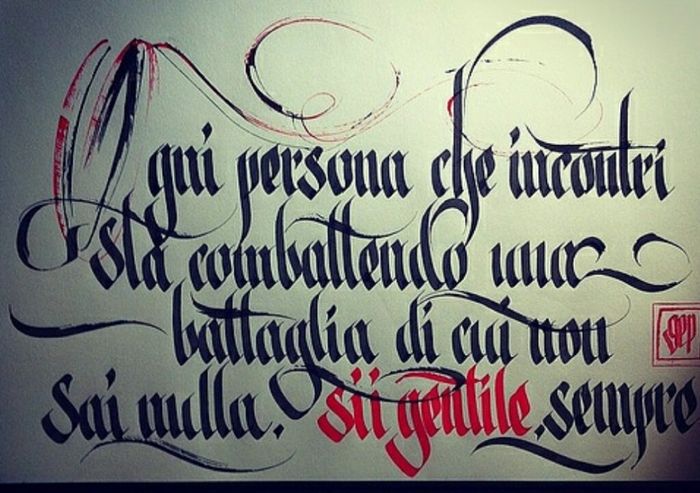 Ogni persona che incontri
sta combattendo una
battaglia di cui non
sai nulla. Sii gentile, sempre
GEP